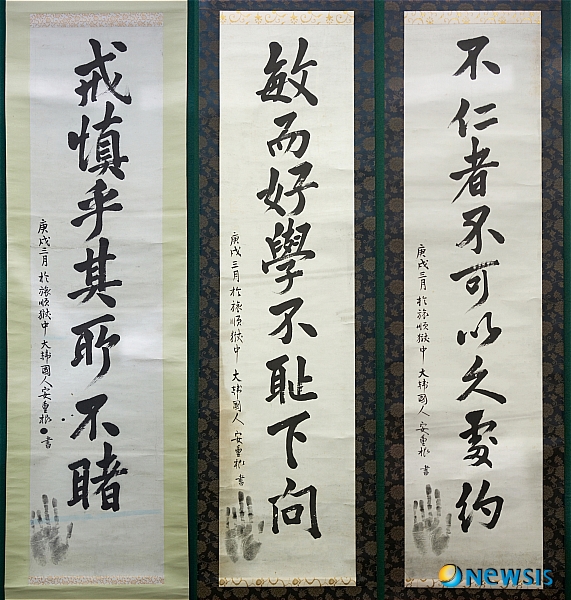 不仁者不可以久處約
庚戌三月 於旅順獄中 大韓國人 安重根 書
敏而好學不耻下問
庚戌三月 於旅順獄中 大韓國人 安重根 書
戒愼乎其所不睹
庚戌三月 於旅順獄中 大韓國人 安重根 書
NEWSIS